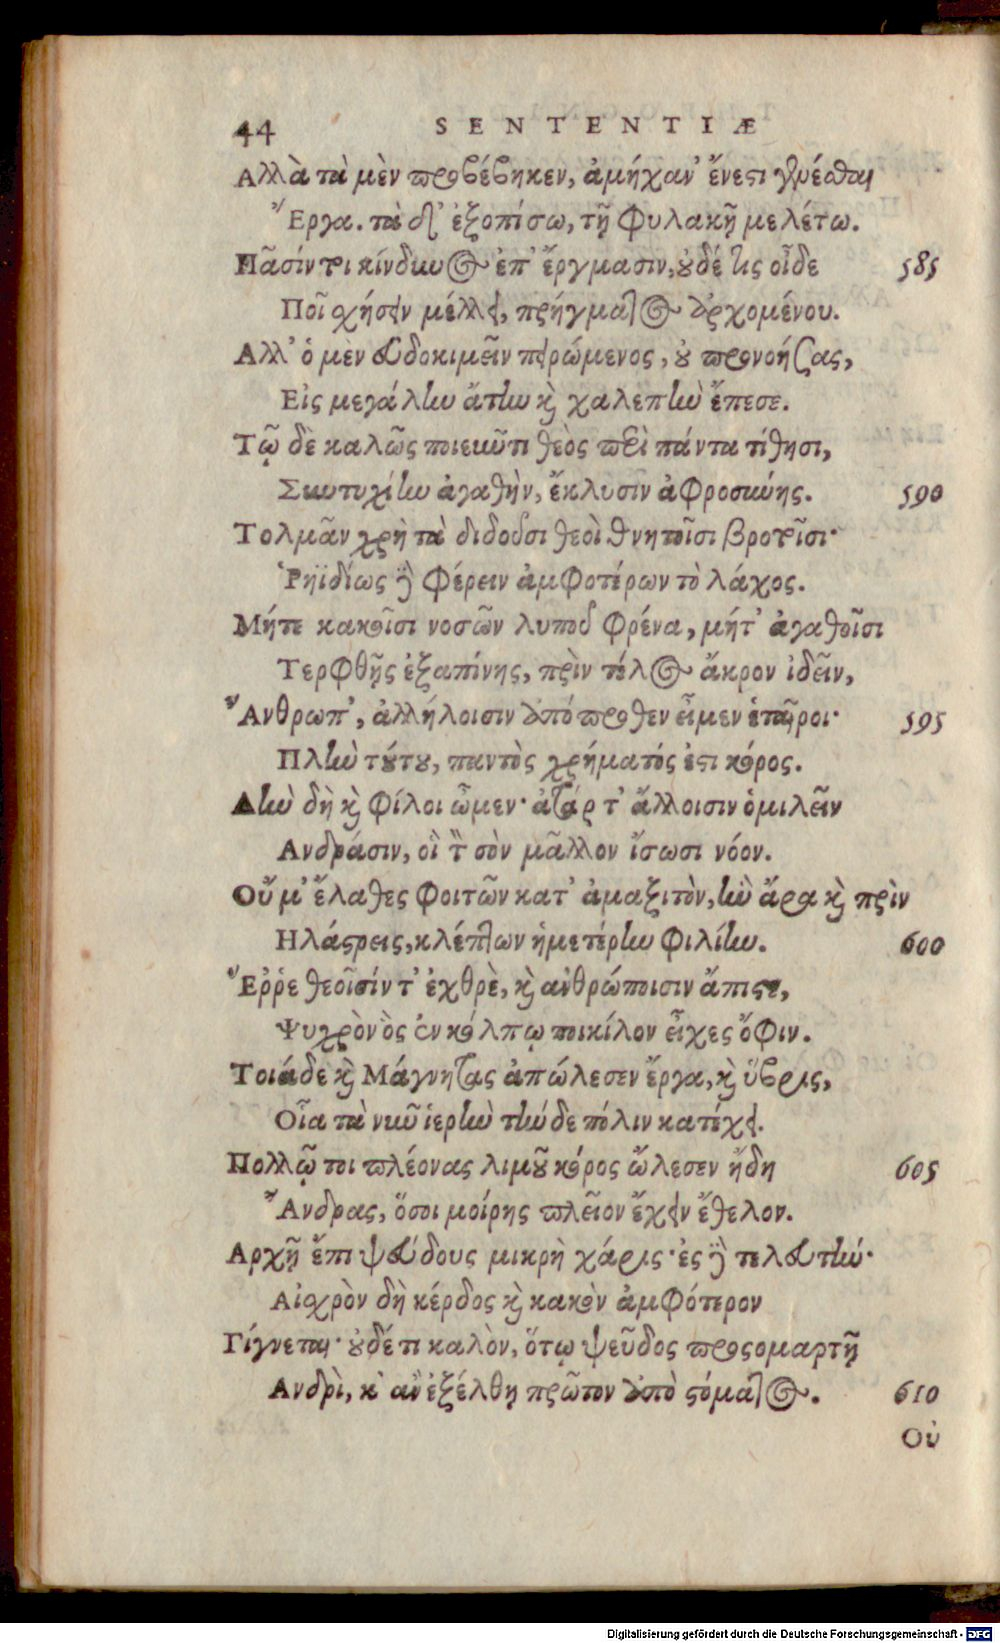 44 SENTENTIÆ
Αλλὰ τὰ μὲν προβέβηκεν, ἀμήχαν᾽ ἔνεστι γενέσθαι
Ἔργα. τὰ δ᾽ ἐξοπίσω, τῇ φυλακῇ μελέτω.
Πᾶσίν τοι κίνδυνος ἐπ᾽ ἔργμασιν, οὐδέ τις οἶδε 585
Ποῖ χήσειν μέλλει, πρήγματος ἀρχομένου.
Αλλ᾽ ὁ μὲν εὐδοκιμεῖν πειρώμενος, οὐ προνοήσας,
Εἰς μεγάλην ἄτην καὶ χαλεπὴν ἔπεσε.
Τῷ δὲ καλῶς ποιεῦντι θεὸς περὶ πάντα τίθησι,
Συντυχίην ἀγαθὴν, ἔκλυσιν ἀφροσύνης. 590
Τολμᾶν χρὴ τὰ διδοῦσι θεοὶ θνητοῖσι βροτοῖσι·
Ῥηϊδίως δὲ φέρειν ἀμφοτέρων τὸ λάχος.
Μήτε κακοῖσι νοσῶν λυποῦ φρένα, μήτ᾽ ἀγαθοῖσι
Τερφθῇς ἐξαπίνης, πρὶν τέλος ἄκρον ἰδεῖν,
Ἄνθρωπ᾽, ἀλλήλοισιν ἀπόπροθεν εἶμεν ἑταῖροι· 595
Πλὴν τούτου, παντὸς χρήματός ἐστι κόρος.
Δὴν δὴ καὶ φίλοι ὦμεν· ἀτάρ τ᾽ ἄλλοισιν ὁμιλεῖν
Ανδράσιν, οἳ τὸν σὸν μᾶλλον ἴσωσι νόον.
Οὔ μ᾽ ἔλαθες φοιτῶν κατ᾽ ἀμαξιτὸν, ἣν ἄρα καὶ πρὶν
Ηλάστρεις, κλέπτων ἡμετέρην φιλίην. 600
Ἔῤῥε θεοῖσίν τ᾽ ἐχθρὲ, καὶ ἀνθρώποισιν ἄπιστε,
Ψυχρὸν ὃς ἐν κόλπῳ ποικίλον εἶχες ὄφιν.
Τοιάδε καὶ Μάγνητας ἀπώλεσεν ἔργα, καὶ ὕβρις,
Οἷα τὰ νῦν ἱερὴν τήνδε πόλιν κατέχει.
Πολλῷ τοι πλέονας λιμοῦ κόρος ὤλεσεν ἤδη 605
Ἄνδρας, ὅσοι μοίρης πλεῖον ἔχειν ἔθελον.
Αρχῇ ἔπι ψεύδους μικρὴ χάρις· ἐς δὲ τελευτήν·
Αἰχρὸν δὴ κέρδος καὶ κακὸν ἀμφότερον
Γίγνεται· οὐδέ τι καλὸν, ὅτῳ ψεῦδος προςομαρτῇ
Ανδρὶ, κ᾽ ἂν ἐξέλθῃ πρῶτον ἀπὸ στόματος. 610
Οὐ
Digitalisierung gefördert durch die Deutsche Forschungsgemeinschaft - DFG